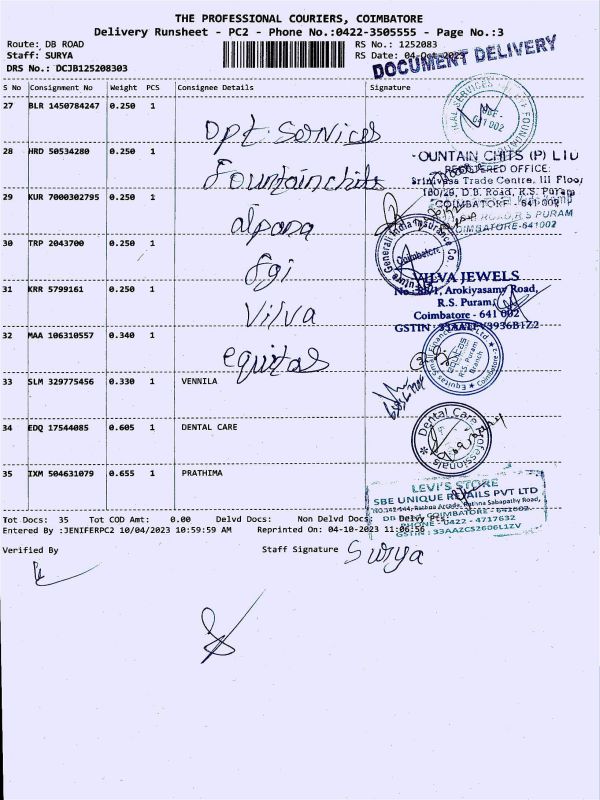 THE PROFESSIONAL COURIERS, COIMBATORE
Delivery Runsheet - PC2 - Phone No.:0422-3505555 - Page No.:3
Route: DB ROAD
RS No.: 1252083
Staff: SURYA
RS Date: 04-Oct-2023
DRS No.: DCJB125208303
DOCUMENT DELIVERY
S No Consignment No Weight PCS Consignee Details Signature
27 BLR 1450784247 0.250 1
Dpt. Services
641 002
28 HRD 50534280 0.250 1
Fountainchits
OUNTAIN CHITS (P) Ltd
REGISTERED OFFICE:
Srinivasa Trade Centre, III Floor
160/29, D.B. Road, R.S. Puram
COIMBATORE - 641 002
29 KUR 7000302795 0.250 1
alpana
R.S PURAM
COIMBATORE-641002
30 TRP 2043700 0.250 1
Fgi
Future General India Insurance Co
Coimbatore
31 KRR 5799161 0.250 1
Vilva
VILVA JEWELS
Arokiyasamy Road,
R.S. Puram,
Coimbatore - 641 002
GSTIN : 33AAIFV3936B1Z2
32 MAA 106310557 0.340 1
equitas
Equitas Small Finance
R.S. Puram
Branch
Coimbatore
33 SLM 329775456 0.330 1 VENNILA
34 EDQ 17544085 0.605 1 DENTAL CARE
Dental Care Professionals
35 IXM 504631079 0.655 1 PRATHIMA
LEVI'S STORE
SBE UNIQUE RETAILS PVT LTD
Sabapathy Road,
DB Road, COIMBATORE - 641002
PHONE : 0422 - 4717632
GSTIN : 33AAZCS2606L1ZV
Tot Docs: 35 Tot COD Amt: 0.00 Delvd Docs: Non Delvd Docs:
Entered By :JENIFERPC2 10/04/2023 10:59:59 AM Reprinted On: 04-10-2023 11:06:56
Verified By
Staff Signature Surya